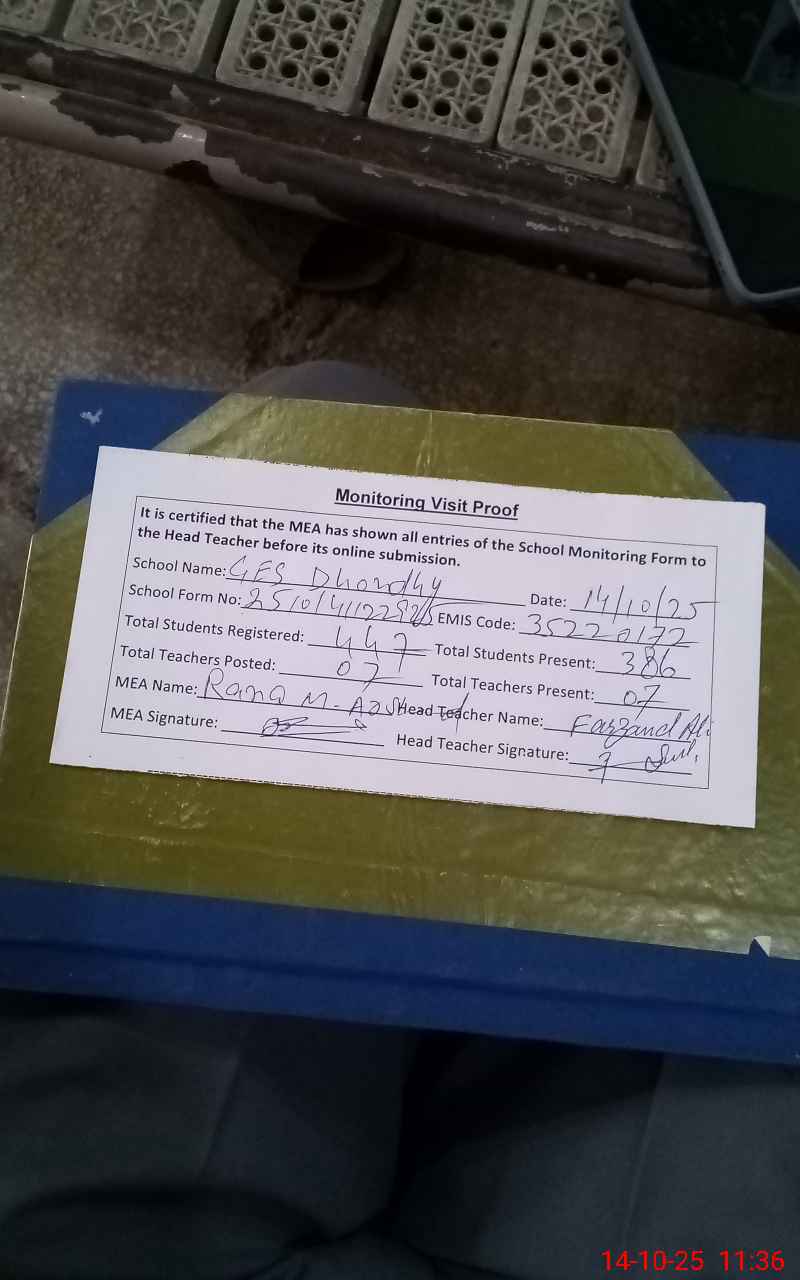 Monitoring Visit Proof
It is certified that the MEA has shown all entries of the School Monitoring Form to
the Head Teacher before its online submission.
School Name: GES Dhondhy Date: 14/10/25
School Form No: EMIS Code: 35220172
Total Students Registered: 447 Total Students Present: 386
Total Teachers Posted: 07 Total Teachers Present: 07
MEA Name: Rana M. Head Teacher Name: Farzand Ali
MEA Signature: Head Teacher Signature:
14-10-25 11:36